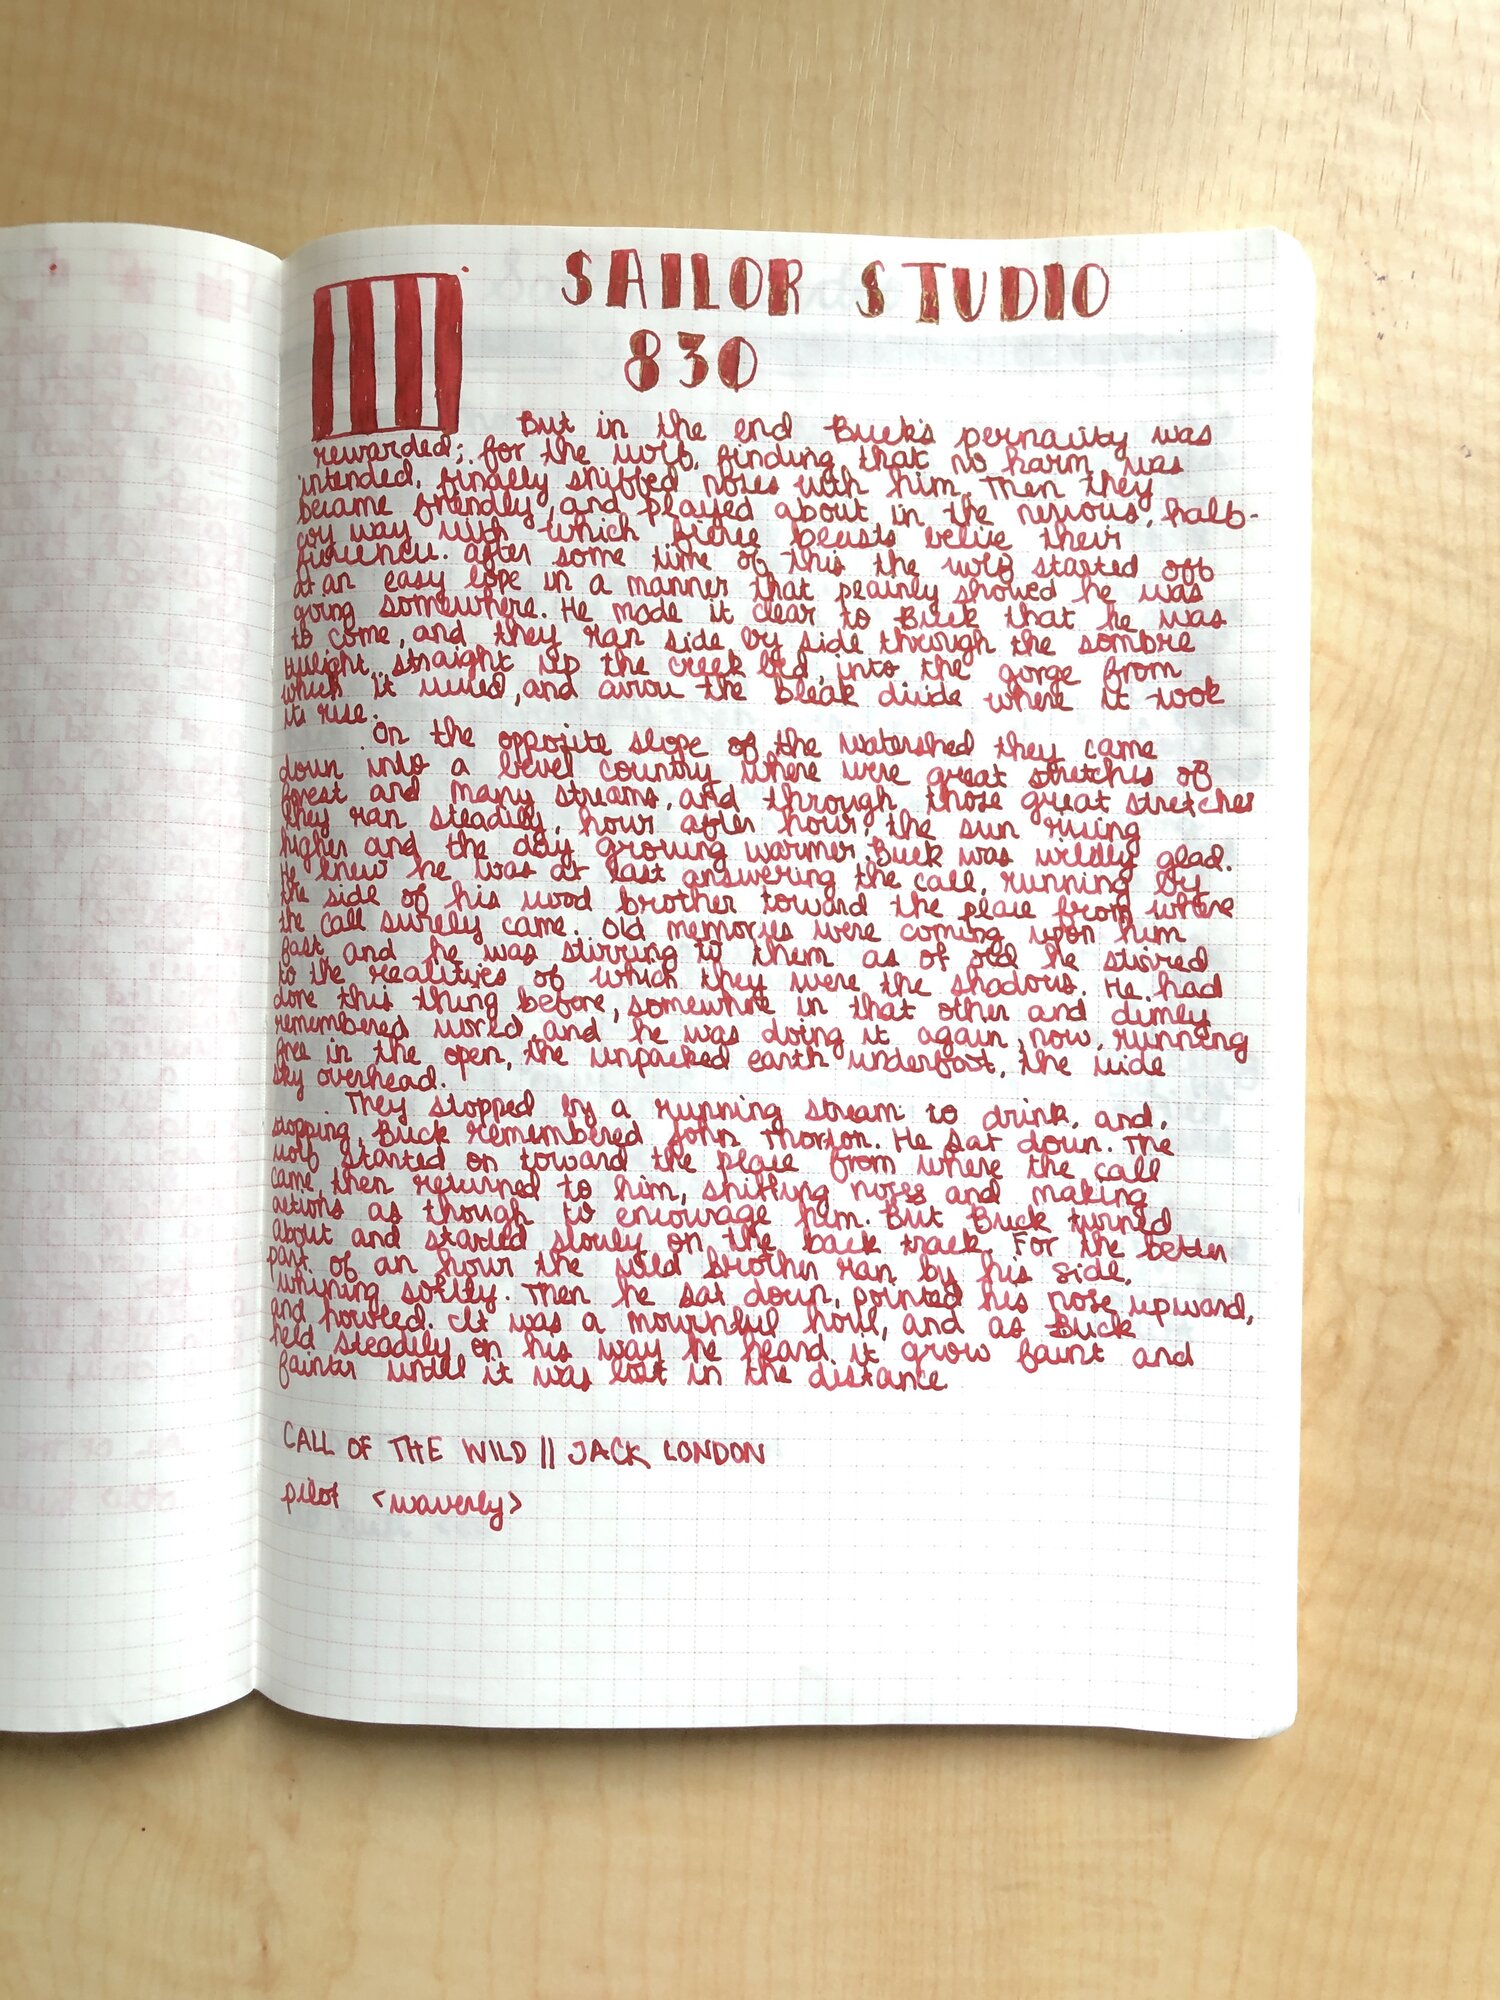 SAILOR STUDIO
830
But in the end Buck's pernacity was
rewarded; for the wolf, finding that no harm was
intended, finally sniffed noses with him. Then they
became friendly, and played about in the nervous, half-
coy way with which fierce beasts belie their
fierceness. After some time of this the wolf started off
at an easy lope in a manner that plainly showed he was
going somewhere. He made it clear to Buck that he was
to come, and they ran side by side through the sombre
twilight, straight up the creek bed, into the gorge from
which it issued, and across the bleak divide where it took
its rise.
On the opposite slope of the watershed they came
down into a level country where were great stretches of
forest and many streams, and through those great stretches
they ran steadily, hour after hour, the sun rising
higher and the day growing warmer. Buck was wildly glad.
He knew he was at last answering the call, running by
the side of his wood brother toward the place from where
the call surely came. Old memories were coming upon him
fast, and he was stirring to them as of old he stirred
to the realities of which they were the shadows. He had
done this thing before, somewhere in that other and dimly
remembered world, and he was doing it again, now, running
free in the open, the unpacked earth underfoot, the wide
sky overhead.
They stopped by a running stream to drink, and,
stopping, Buck remembered John Thorton. He sat down. The
wolf started on toward the place from where the call
came, then returned to him, sniffing noses and making
actions as though to encourage him. But Buck turned
about and started slowly on the back track. For the better
part of an hour the wild brother ran by his side,
whining softly. Then he sat down, pointed his nose upward,
and howled. It was a mournful howl, and as Buck
held steadily on his way he heard it grow faint and
fainter until it was lost in the distance.
CALL OF THE WILD || JACK LONDON
pilot <waverly>